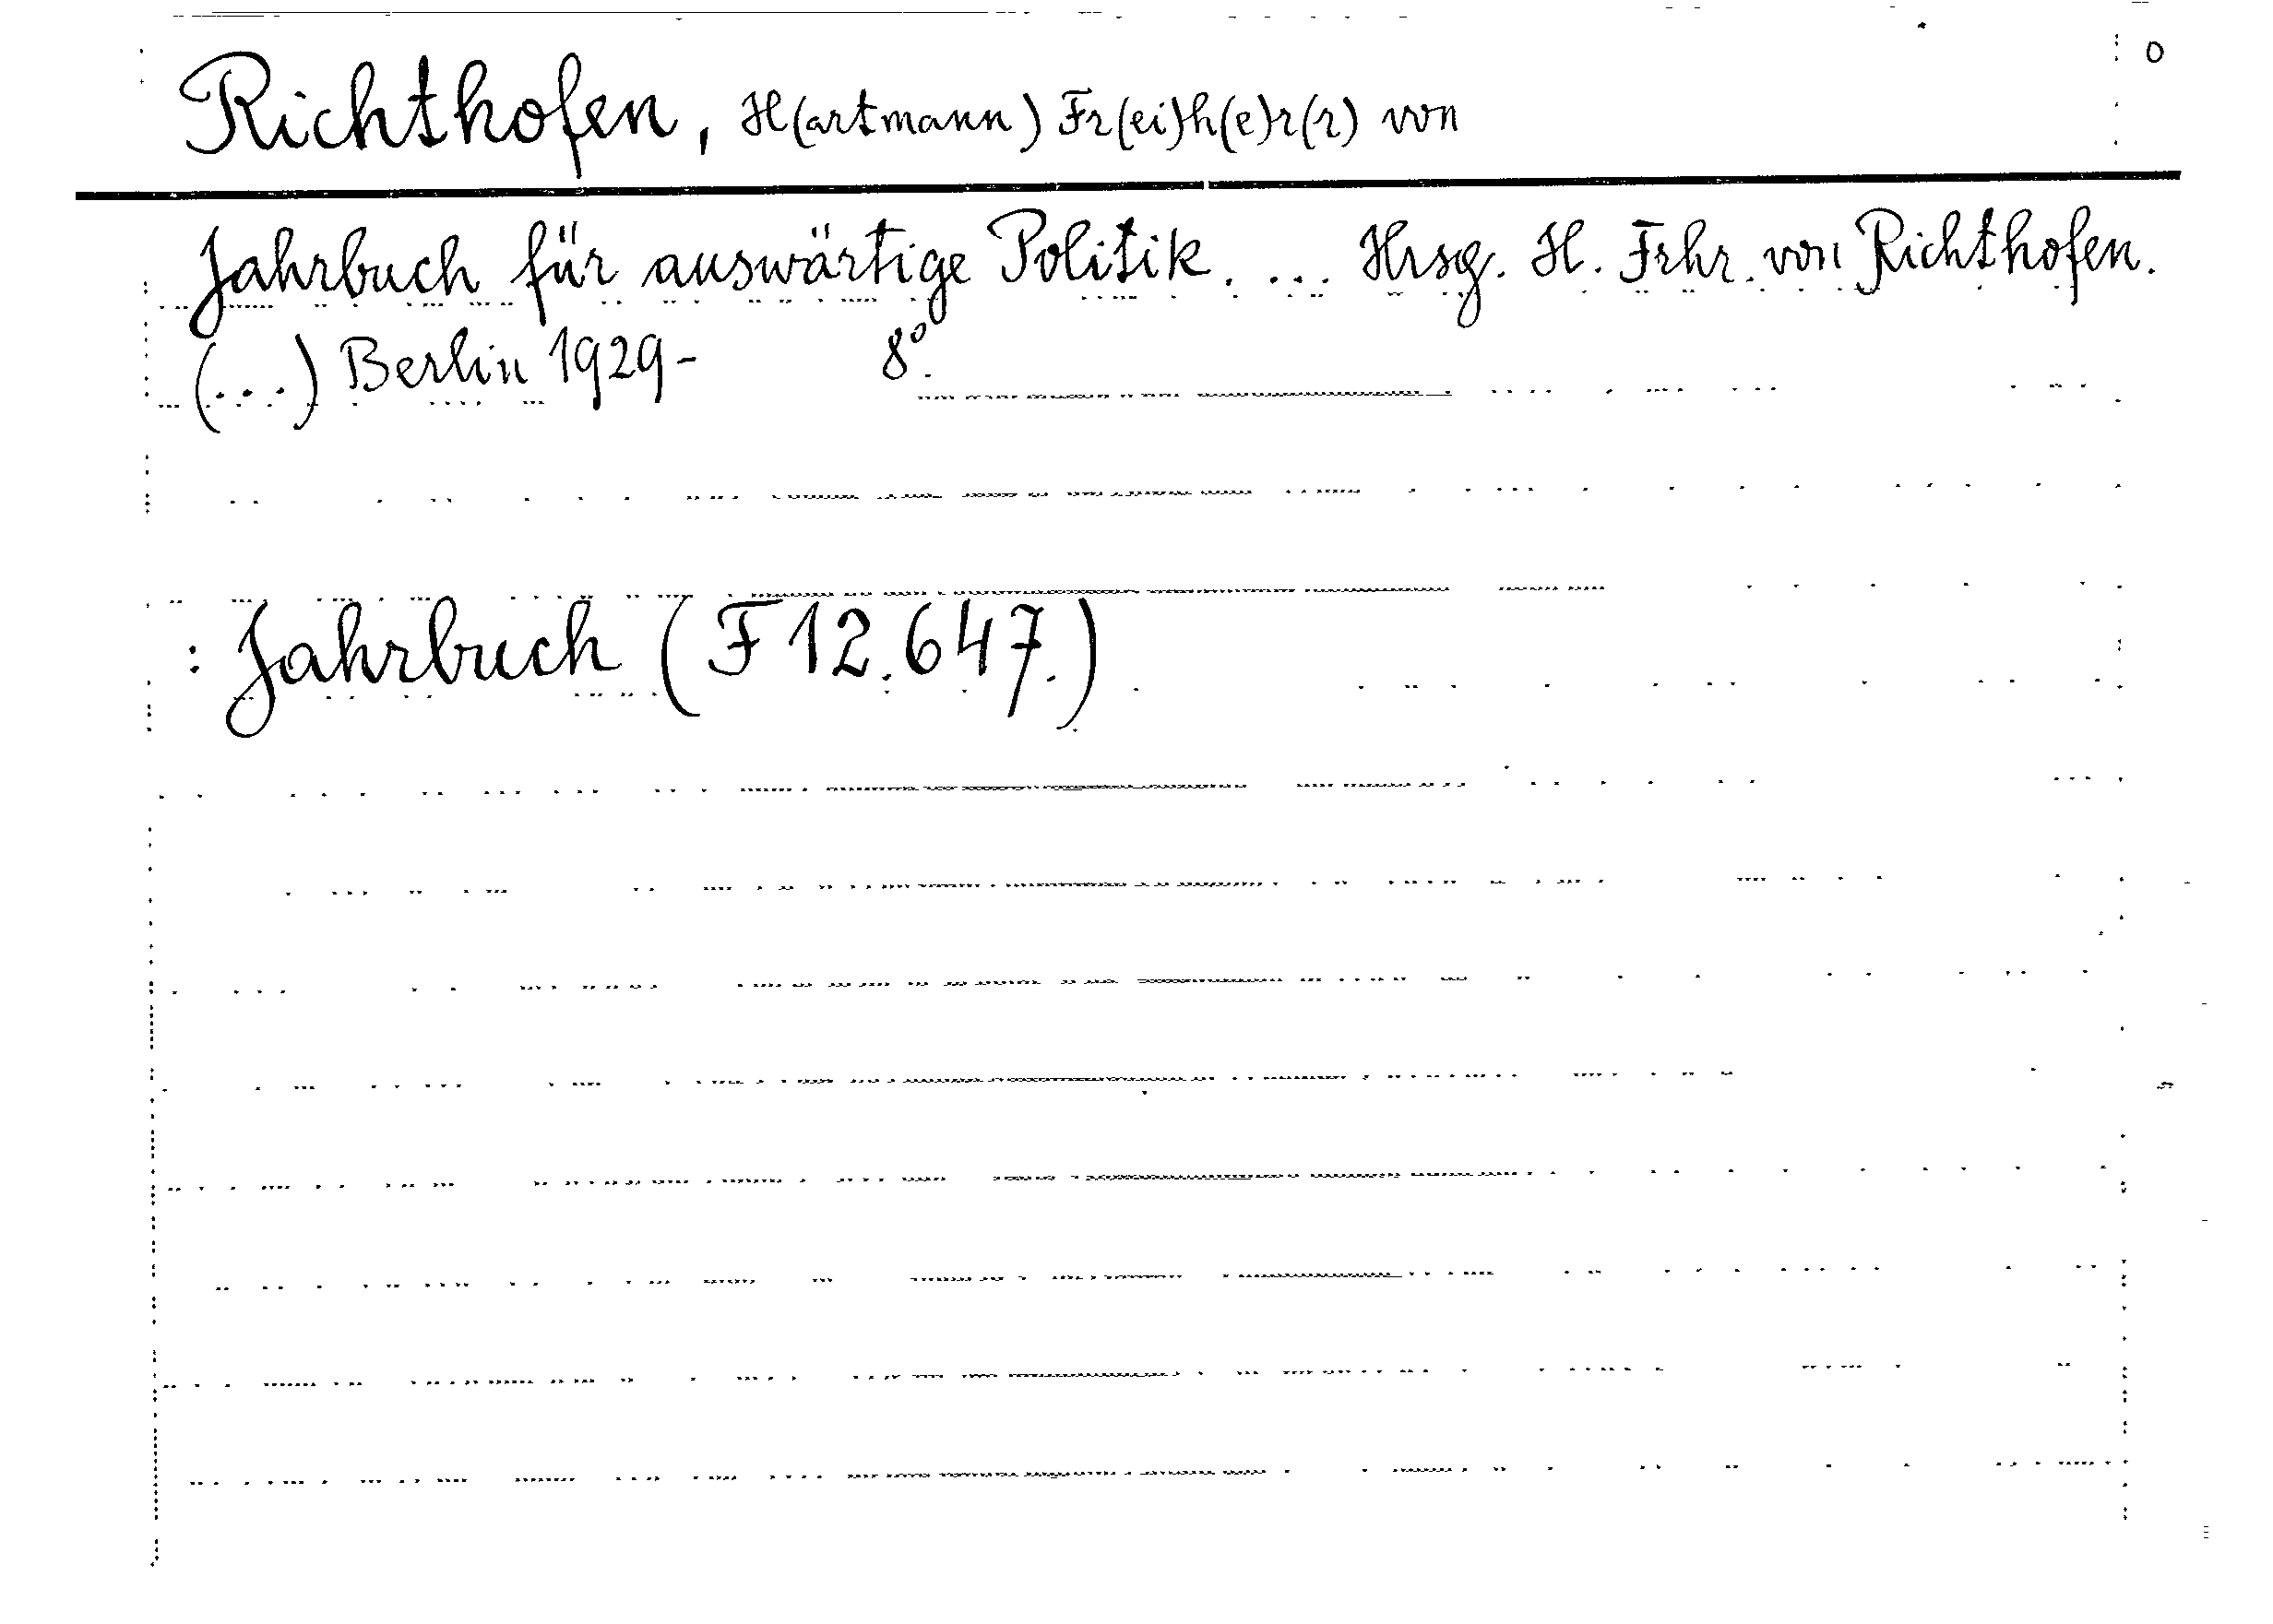 o
Richthofen, H(artmann) Fr(ei)h(e)r(r) von
Jahrbuch für auswärtige Politik. ... Hrsg. H. Frhr. von Richthofen.
(...) Berlin 1929- 8°.
: Jahrbuch (F 12.647.)